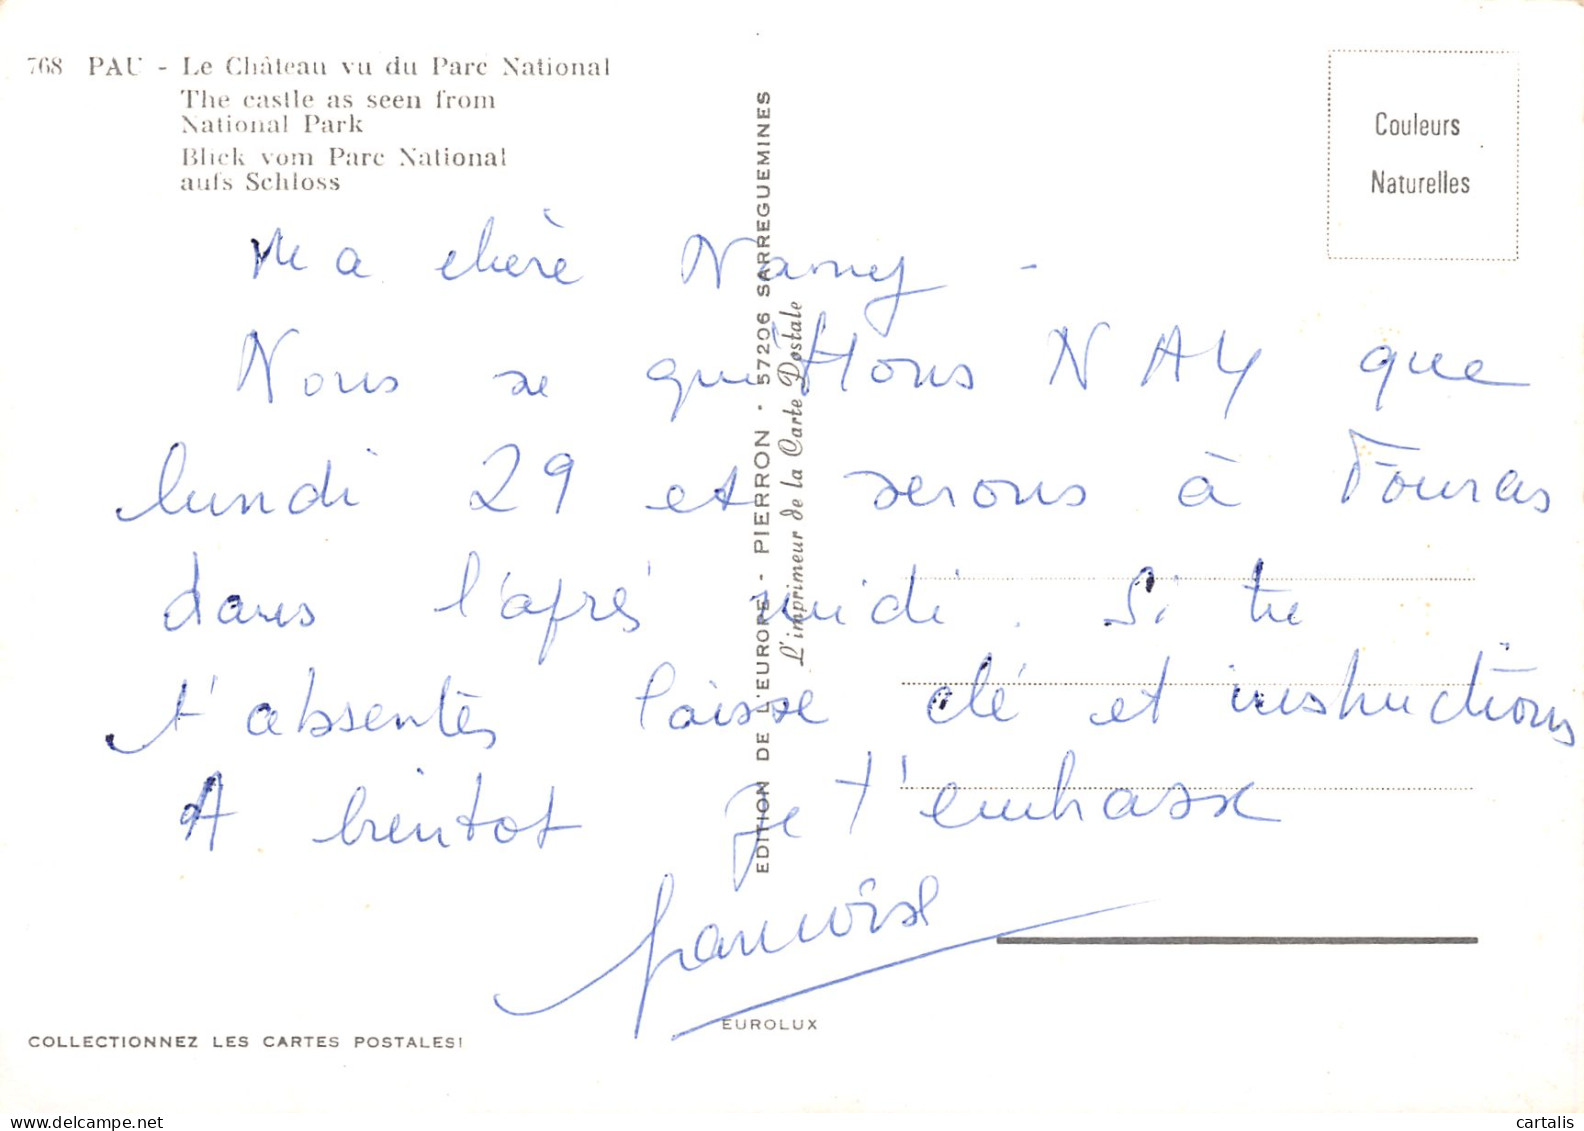 768 PAU - Le Château vu du Parc National
The castle as seen from
National Park
Blick vom Parc National
aufs Schloss
Couleurs
Naturelles
EDITION DE L'EUROPE - PIERRON - 57206 SARREGUEMINES
L'imprimeur de la Carte Postale
Ma chère Nanny -
Nous ne quittons NAY que
lundi 29 et serons à Fouras
dans l'après midi. Si tu
t'absentes laisse clé et instructions
A bientot je t'embrasse
françoise
EUROLUX
COLLECTIONNEZ LES CARTES POSTALES!
delcampe.net
cartalis